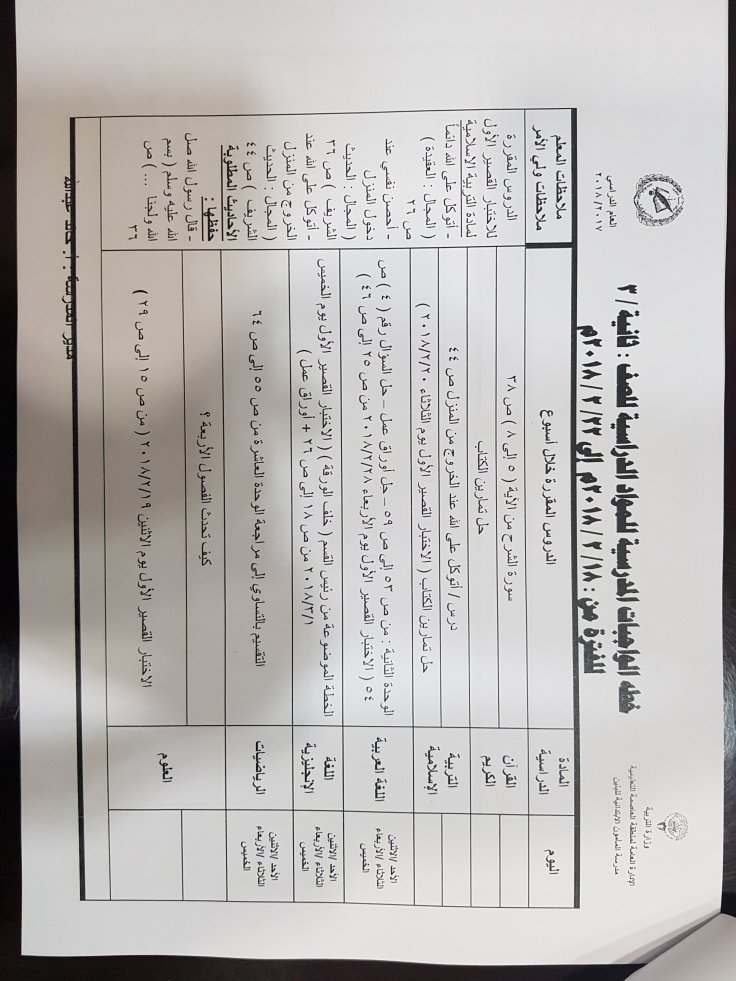 وزارة التربية
الإدارة العامة لمنطقة العاصمة التعليمية
مدرسة المأمون الابتدائية للبنين
العام الدراسي
٢٠١٨/٢٠١٧
خطة الواجبات المدرسية للمواد الدراسية للصف : ثانية / ٣
للفترة من : ٢٠١٨ / ٢ / ١٨م إلى ٢٠١٨ / ٢ / ٢٢م
اليوم
المادة الدراسية
الدروس المقررة خلال أسبوع
ملاحظات المعلم
ملاحظات ولي الأمر
القرآن الكريم
سورة الشرح من الآية ( ٥ إلى ٨ ) ص ٣٨
حل تمارين الكتاب
التربية الإسلامية
درس / أتوكل على الله عند الخروج من المنزل ص ٤٤
حل تمارين الكتاب ( الاختبار القصير الأول يوم الثلاثاء ٢٠١٨/٢/٢٠ )
الأحد /الاثنين
الثلاثاء /الأربعاء
الخميس
اللغة العربية
الوحدة الثانية : من ص ٥٣ إلى ص ٥٩ – حل أوراق عمل – حل السؤال رقم ( ٤ ) ص
٥٤ ( الاختبار القصير الأول يوم الأربعاء ٢٠١٨/٢/٢٨ من ص ٢٥ إلى ص ٤٦ )
الأحد /الاثنين
الثلاثاء /الأربعاء
الخميس
اللغة الإنجليزية
الخطة الموضوعة من رئيس القسم ( خلف الورقة ) ( الاختبار القصير الأول يوم الخميس
٢٠١٨/٣/١ من ص ١٨ إلى ص ٢٦ + أوراق عمل )
الأحد /الاثنين
الثلاثاء /الأربعاء
الخميس
الرياضيات
التقسيم بالتساوي إلى مراجعة الوحدة العاشرة من ص ٥٥ إلى ص ٦٤
العلوم
كيف تحدث الفصول الأربعة ؟
الاختبار القصير الأول يوم الاثنين ٢٠١٨/٢/١٩ ( من ص ١٥ إلى ص ٢٩ )
الدروس المقررة
للاختبار القصير الأول
لمادة التربية الإسلامية
- أتوكل على الله دائماً
( المجال : العقيدة )
ص ٢٦
- أحصن نفسي عند
دخول المنزل
( المجال : الحديث
الشريف ) ص ٣٦
- أتوكل على الله عند
الخروج من المنزل
( المجال : الحديث
الشريف ) ص ٤٤
الأحاديث المطلوبة
حفظها :
- قال رسول الله صل
الله عليه وسلم ( بسم
الله ولجنا ... ) ص
٣٦